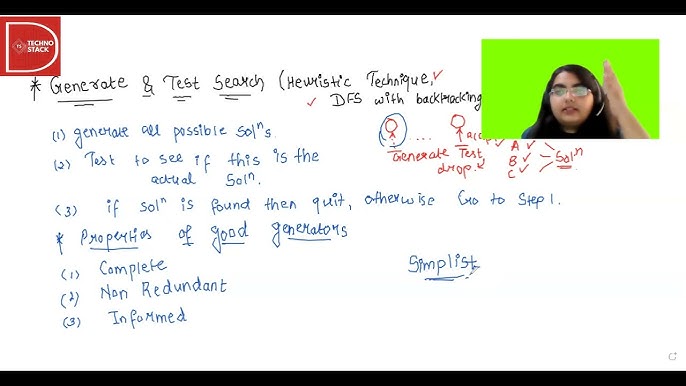 TS
TECHNO
STACK
* Generate & Test Search (Heuristic Technique,
DFS with backtracking
(1) generate all possible solⁿs.
(2) Test to see if this is the
actual solⁿ.
(3) if solⁿ is found then quit, otherwise Go to Step 1.
Generate Test
drop.
A
B
C
Solⁿ
* Properties of good generators
(1) Complete
(2) Non Redundant
(3) Informed
Simplist